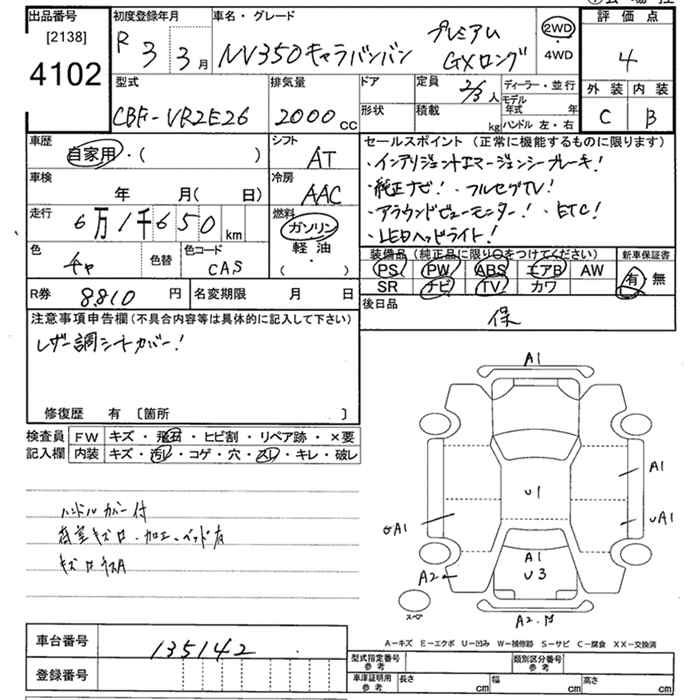 出品番号
[2138]
4102
初度登録年月
R 3 3 月
車名・グレード
NV350キャラバンバン プレミアム GXロング
2WD
・
4WD
評価点
4
外装 内装
C B
型式
CBF-VR2E26
排気量
2000 cc
ドア
形状
定員 2/3 人
積載 kg
ディーラー・並行
モデル年式 年
ハンドル 左・右
車歴
自家用・( )
シフト
AT
車検
年 月( 日)
冷房
AAC
走行
6万1千650 km
燃料
ガソリン
軽油
・
( )
色
チャ
色替
色コード
CAS
R券 8810 円
名変期限 月 日
セールスポイント (正常に機能するものに限ります)
・インテリジェントエマージェンシーブレーキ!
・純正ナビ! ・フルセグTV!
・アラウンドビューモニター! ・ETC!
・LEDヘッドライト!
装備品 (純正品に限り○をつけてください)
PS PW ABS エアB AW
SR ナビ TV カワ
新車保証書
有・無
後日品
保
注意事項申告欄 (不具合内容等は具体的に記入して下さい)
レザー調シートカバー!
修復歴 有 [箇所 ]
検査員
記入欄
FW キズ・飛石・ヒビ割・リペア跡・×要
内装 キズ・汚レ・コゲ・穴・スレ・キレ・破レ
ハンドルカバー付
荷室キズ ロ・加工・ベッド有
車台番号
135142
登録番号
A1
A1
U1
UA1
A1
U3
A2
スペア
A-キズ E-エクボ U-凹み W-補修跡 S-サビ C-腐食 XX-交換済
型式指定番号
参考
類別区分番号
参考
車庫証明用
参考
長さ cm 幅 cm 高さ cm